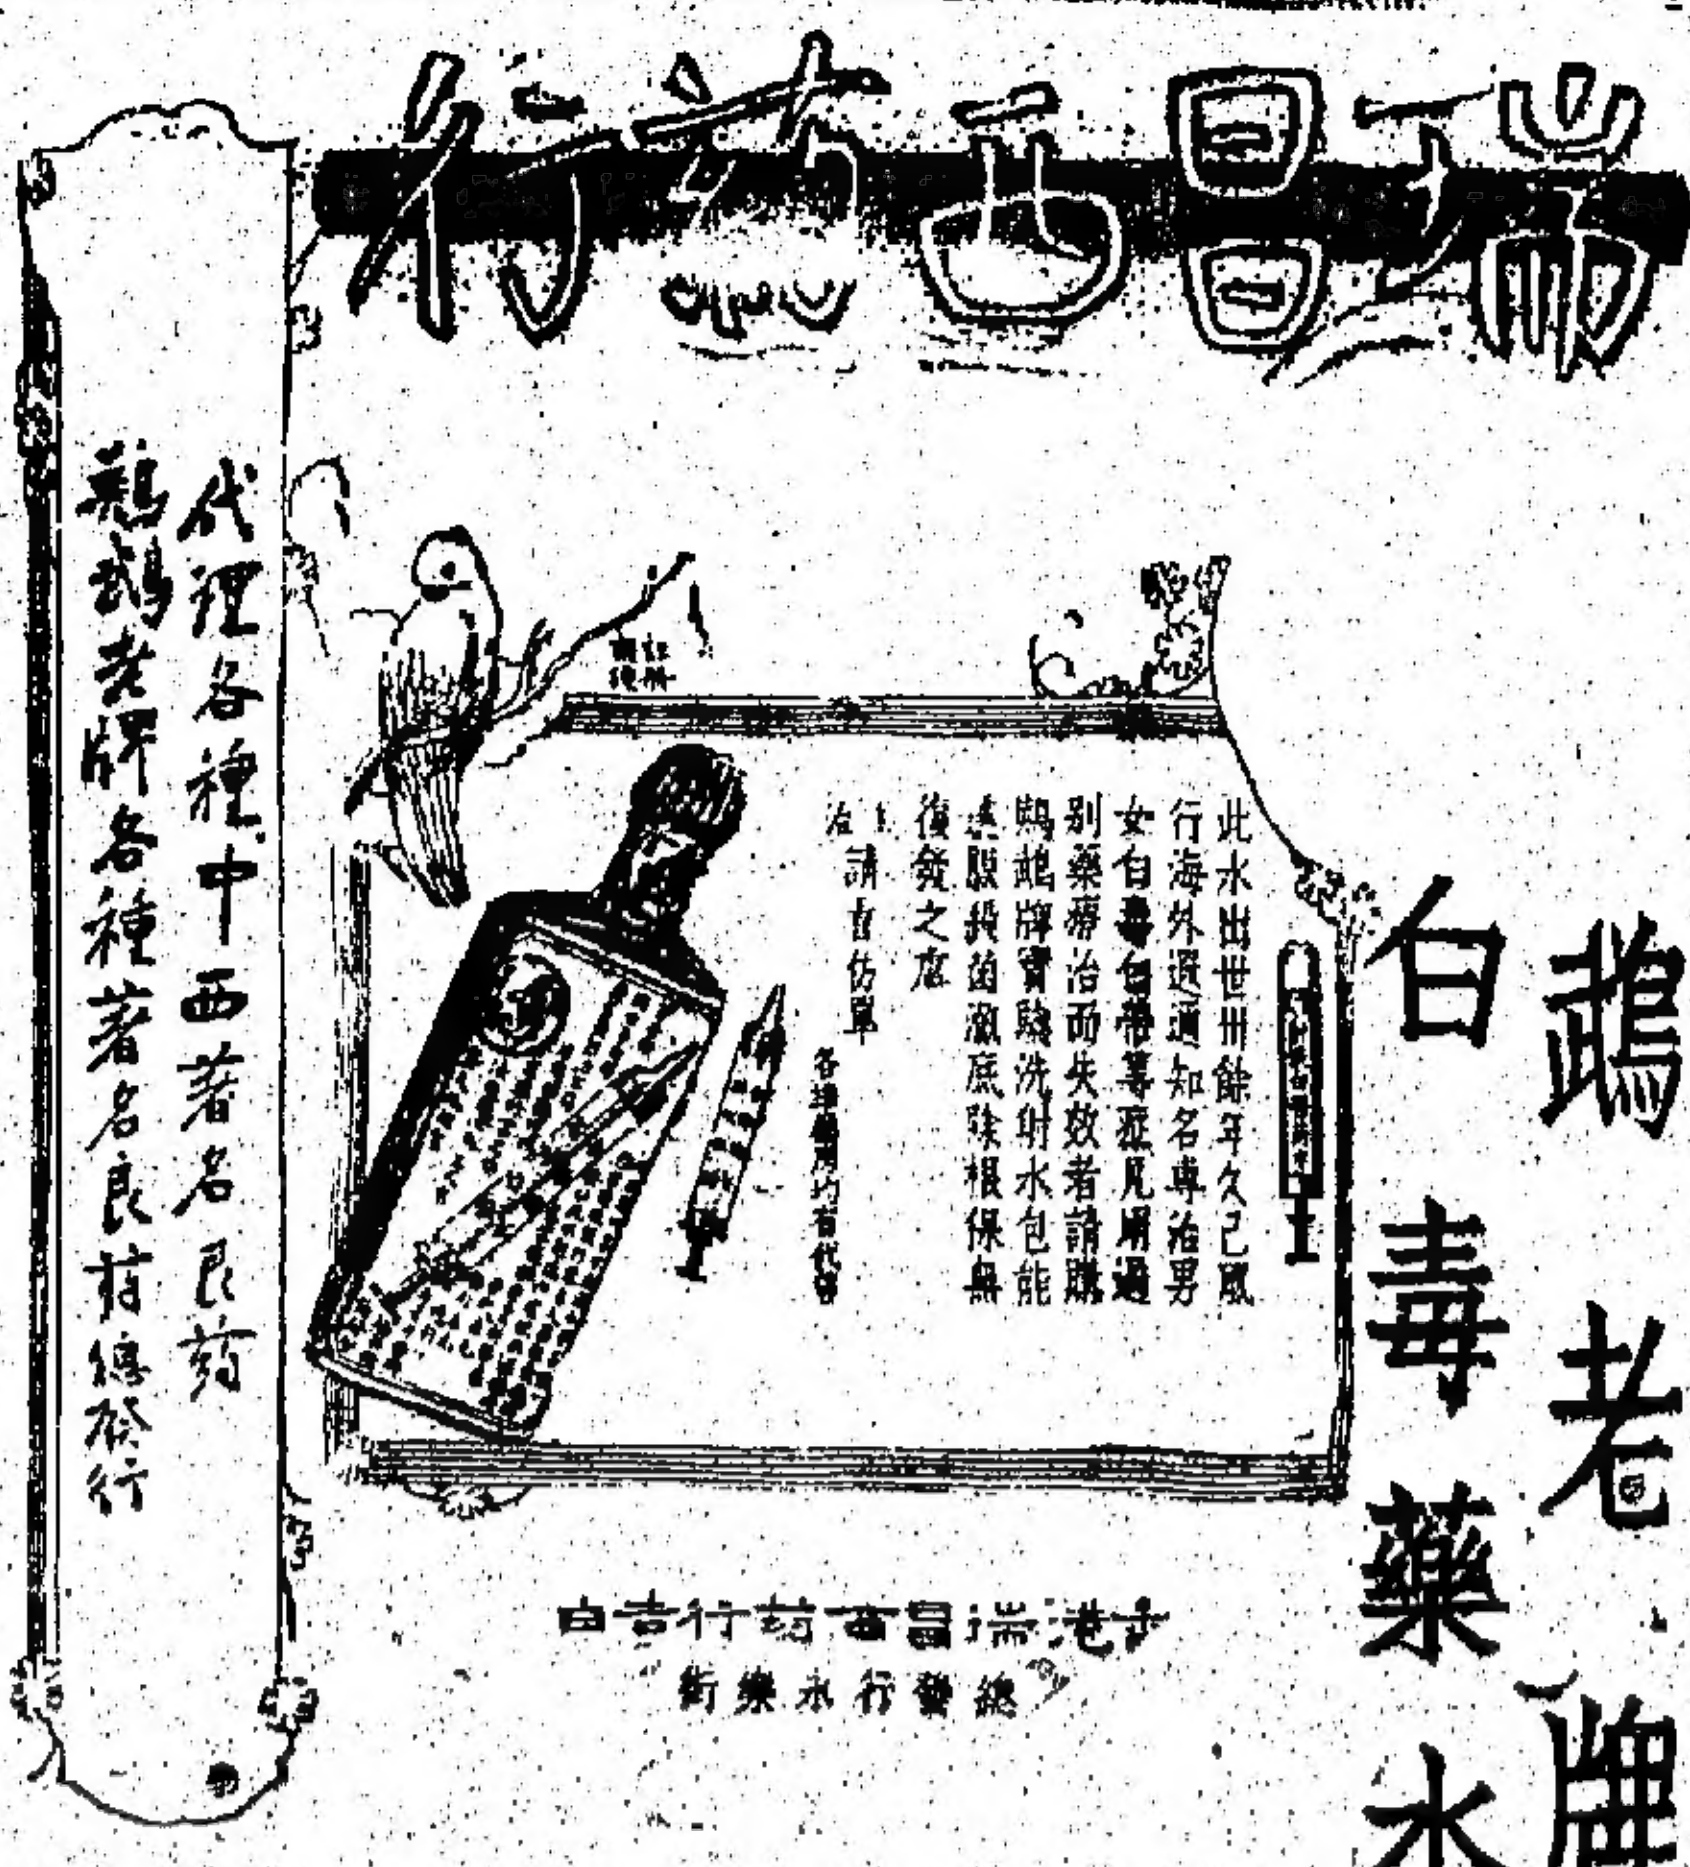 瑞昌西葯行
鵡老牌
白毒藥水
此水出世卅餘年久已風
行海外遐邇知名專治男
女白毒白帶等症凡用過
別藥療治而失效者請購
鸚鵡牌寶驗洗射水包能
殺菌澈底除根保無
復發之虞
請吉仿單
各埠藥房均有代售
香港瑞昌西葯行吉白
總發行永樂街
代理各種中西著名良葯
鸚鵡老牌各種著名良葯總發行